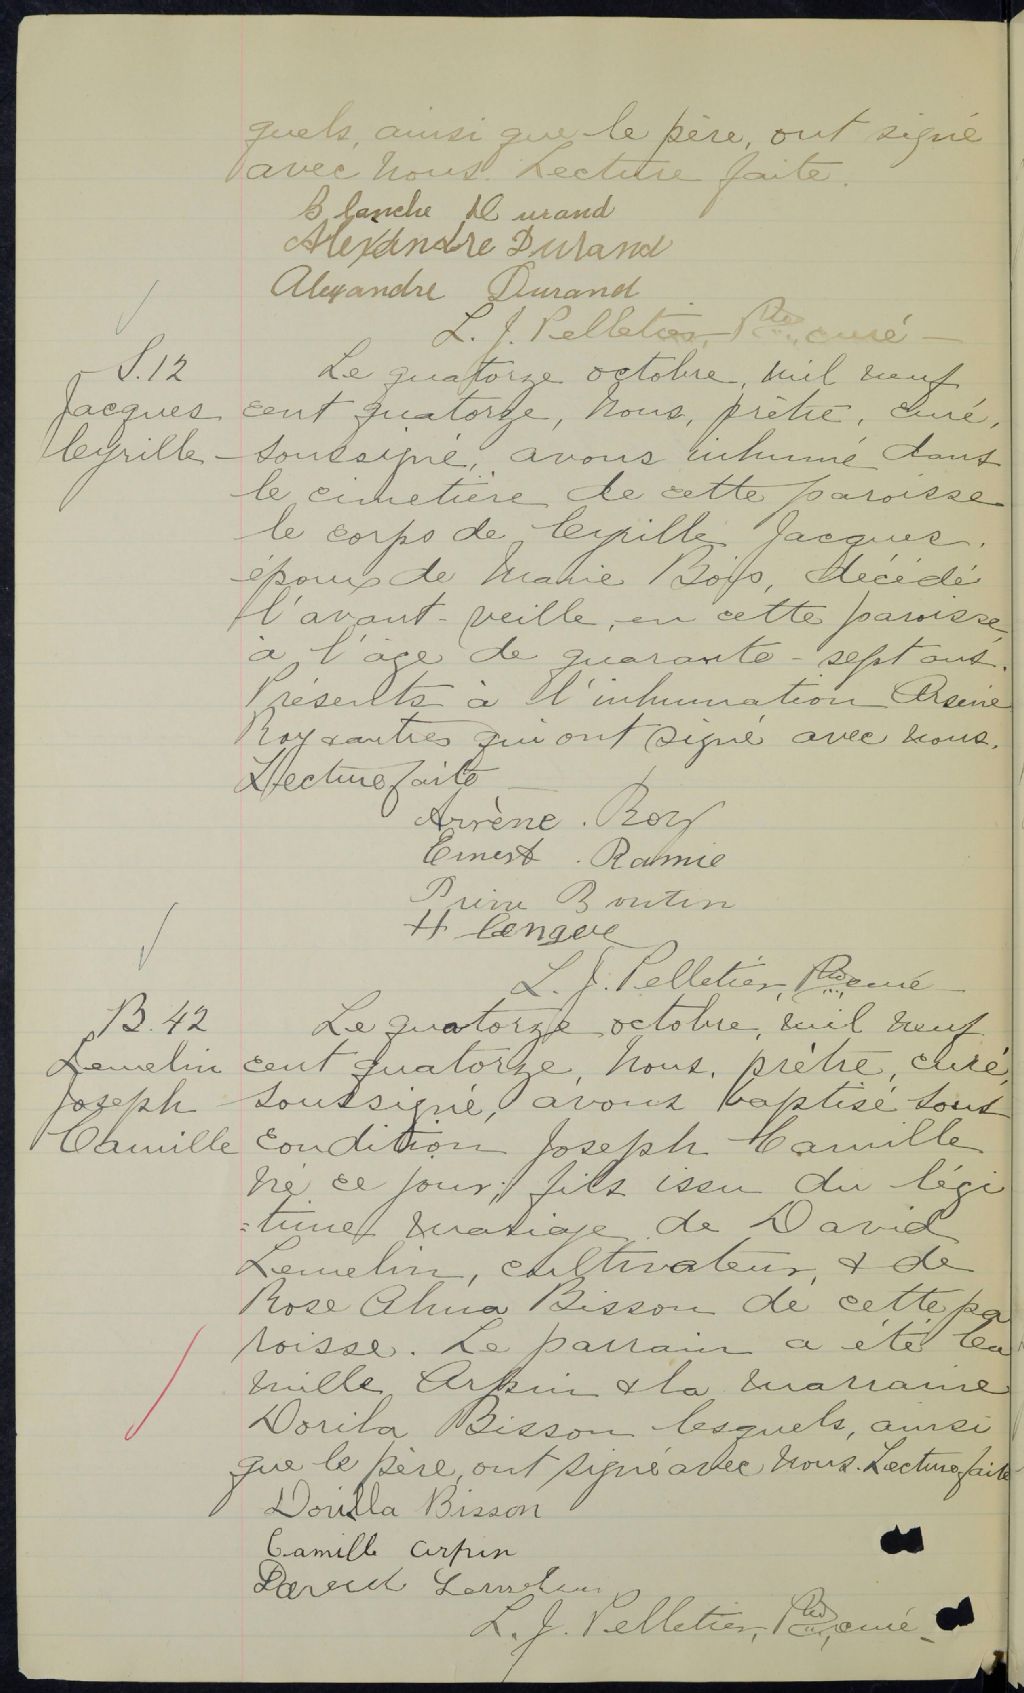 quels, ainsi que le père, ont signé
avec nous. Lecture faite.
Blanche Durand
Alexandre Durand
Alexandre Durand
L. J. Pelletier, Ptre, curé
S. 12
Jacques
Cyrille
Le quatorze octobre, mil neuf
cent quatorze, nous, prêtre, curé,
soussigné, avons inhumé dans
le cimetière de cette paroisse
le corps de Cyrille Jacques,
époux de Marie Bois, décédé
l'avant-veille, en cette paroisse,
à l'âge de quarante-sept ans.
Présents à l'inhumation Arsène
Roy & autres qui ont signé avec nous.
Lecture faite
Arsène Roy
Ernest Ramie
Boutin
H
L. J. Pelletier, Ptre, curé
B. 42
Lemelin
Joseph
Camille
Le quatorze octobre, mil neuf
cent quatorze, nous, prêtre, curé,
soussigné, avons baptisé sous
condition Joseph Camille
né ce jour, fils issu du légi
=time mariage de David
Lemelin, cultivateur, & de
Rose Alma Bisson de cette pa
roisse. Le parrain a été Ca
mille Arpin & la marraine
Dorila Bisson lesquels, ainsi
que le père, ont signé avec nous. Lecture faite
Dorilla Bisson
Camille Arpin
David Lemelin
L. J. Pelletier, Ptre, curé